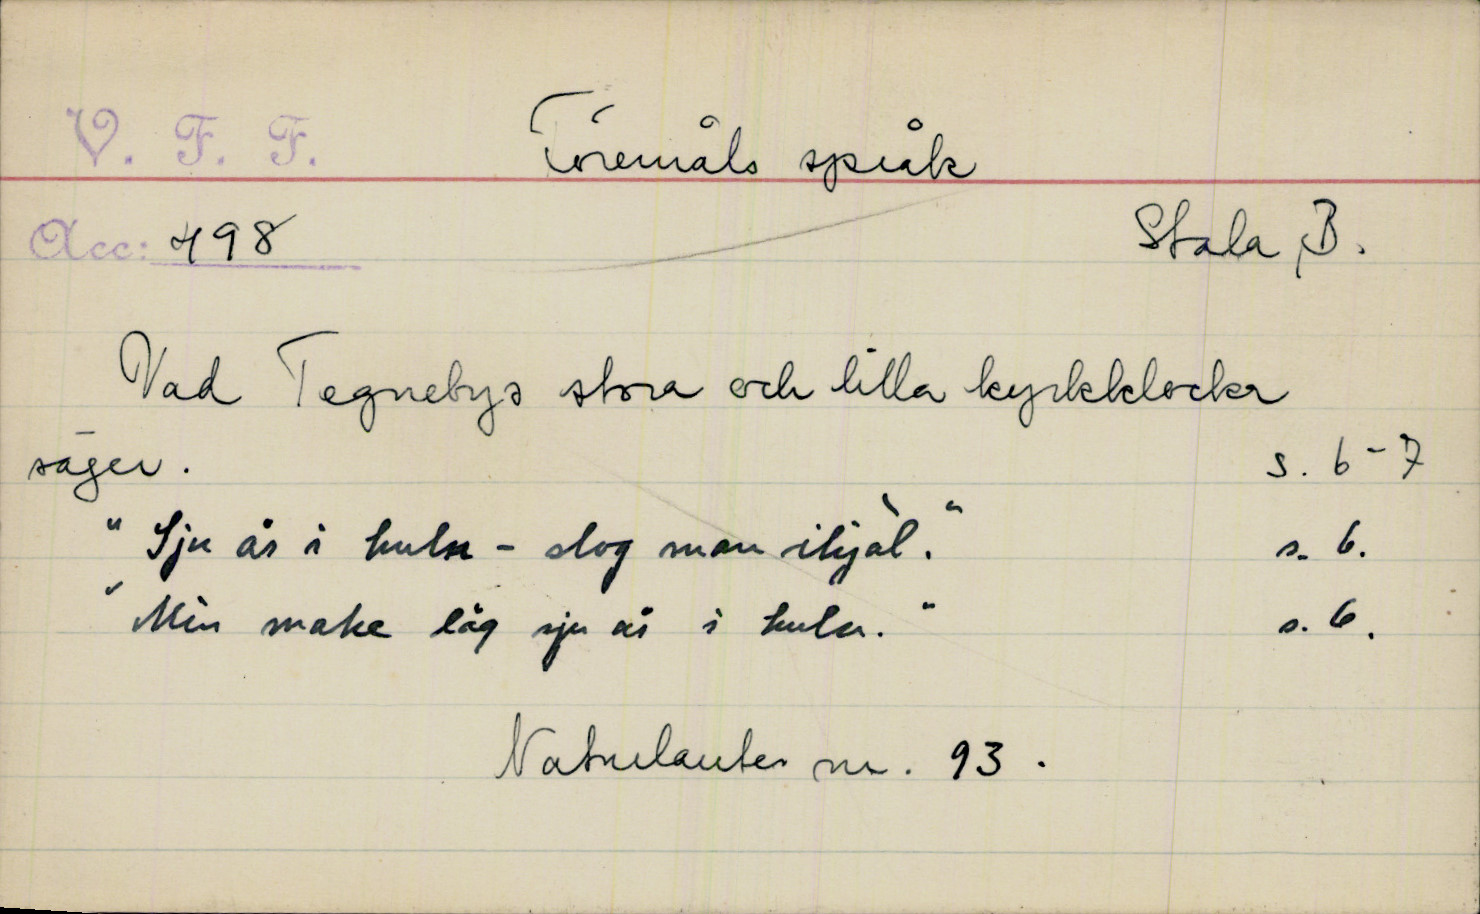 V. F. F.
Föremåls språk
Acc: 498
Stala, B.
Vad Tegnebys stora och lilla kyrkklocka
säger. s. 6-7
"Sju år i hulu - slog man ihjäl." s. 6.
"Min make låg sju år i hulu." s. 6.
Naturlauter nr. 93.